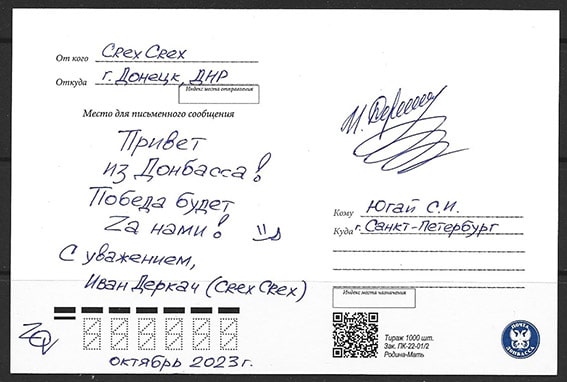 От кого Crex Crex
Откуда г. Донецк, ДНР
Индекс места отправления
Место для письменного сообщения
Привет
из Донбасса!
Победа будет
Zа нами!
С уважением,
Иван Деркач (Crex Crex)
октябрь 2023г.
Кому Югай С.И.
Куда г. Санкт-Петербург
Индекс места назначения
Тираж 1000 шт.
Зак. ПК-22-01/2
Родина-Мать
ПОЧТА
ДОНБАССА